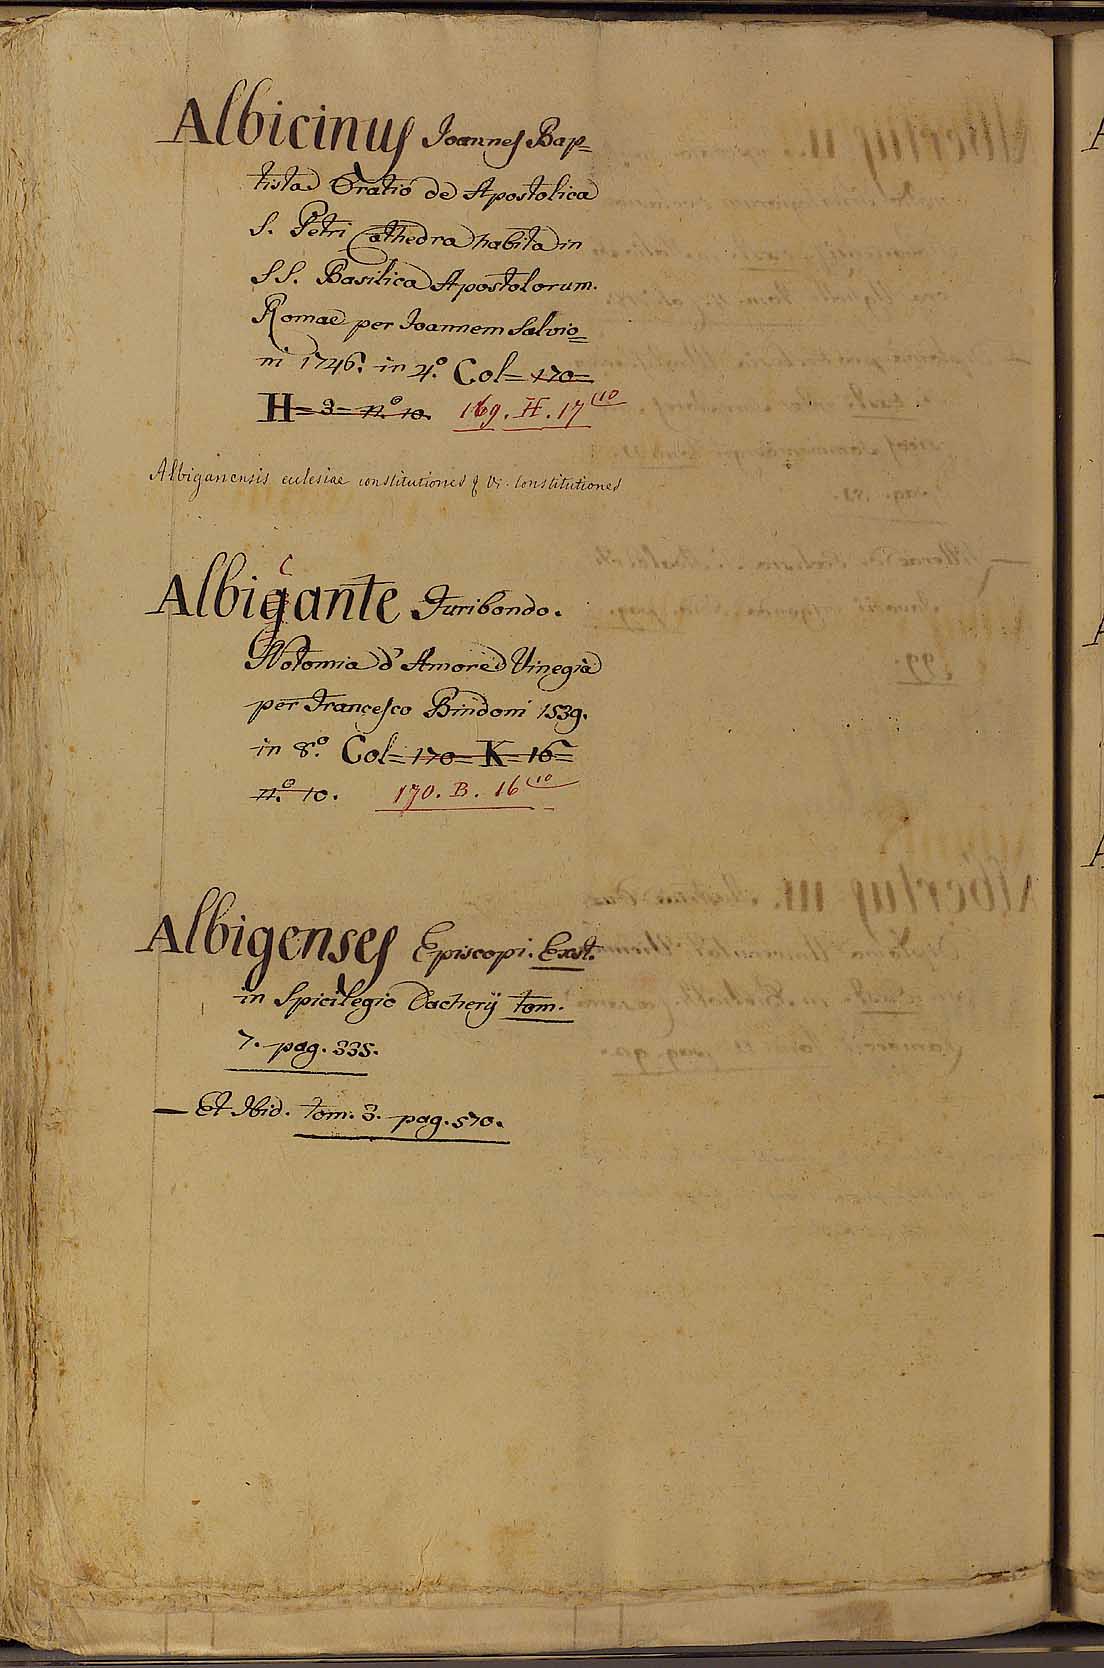 Albicinus Joannes Bap=
tista Oratio de Apostolica
S. Petri Cathedra habita in
SS. Basilica Apostolorum.
Romae per Joannem Salvio=
ni 1746. in 4.º Col= 170=
H=3= n.º 10. 169. H. 17 (10
Albiganensis ecclesiae constitutiones V. Constitutiones
c
Albigante Furibondo.
Notomia d'Amore Vinegia
per Francesco Bindoni 1539.
in 8.º Col= 170= K= 16=
n.º 10. 170. B. 16 (10
Albigenses Episcopi. Exst.
in Spicilegio Dacherij tom.
7. pag. 335.
— Et Ibid. tom. 3. pag. 570.